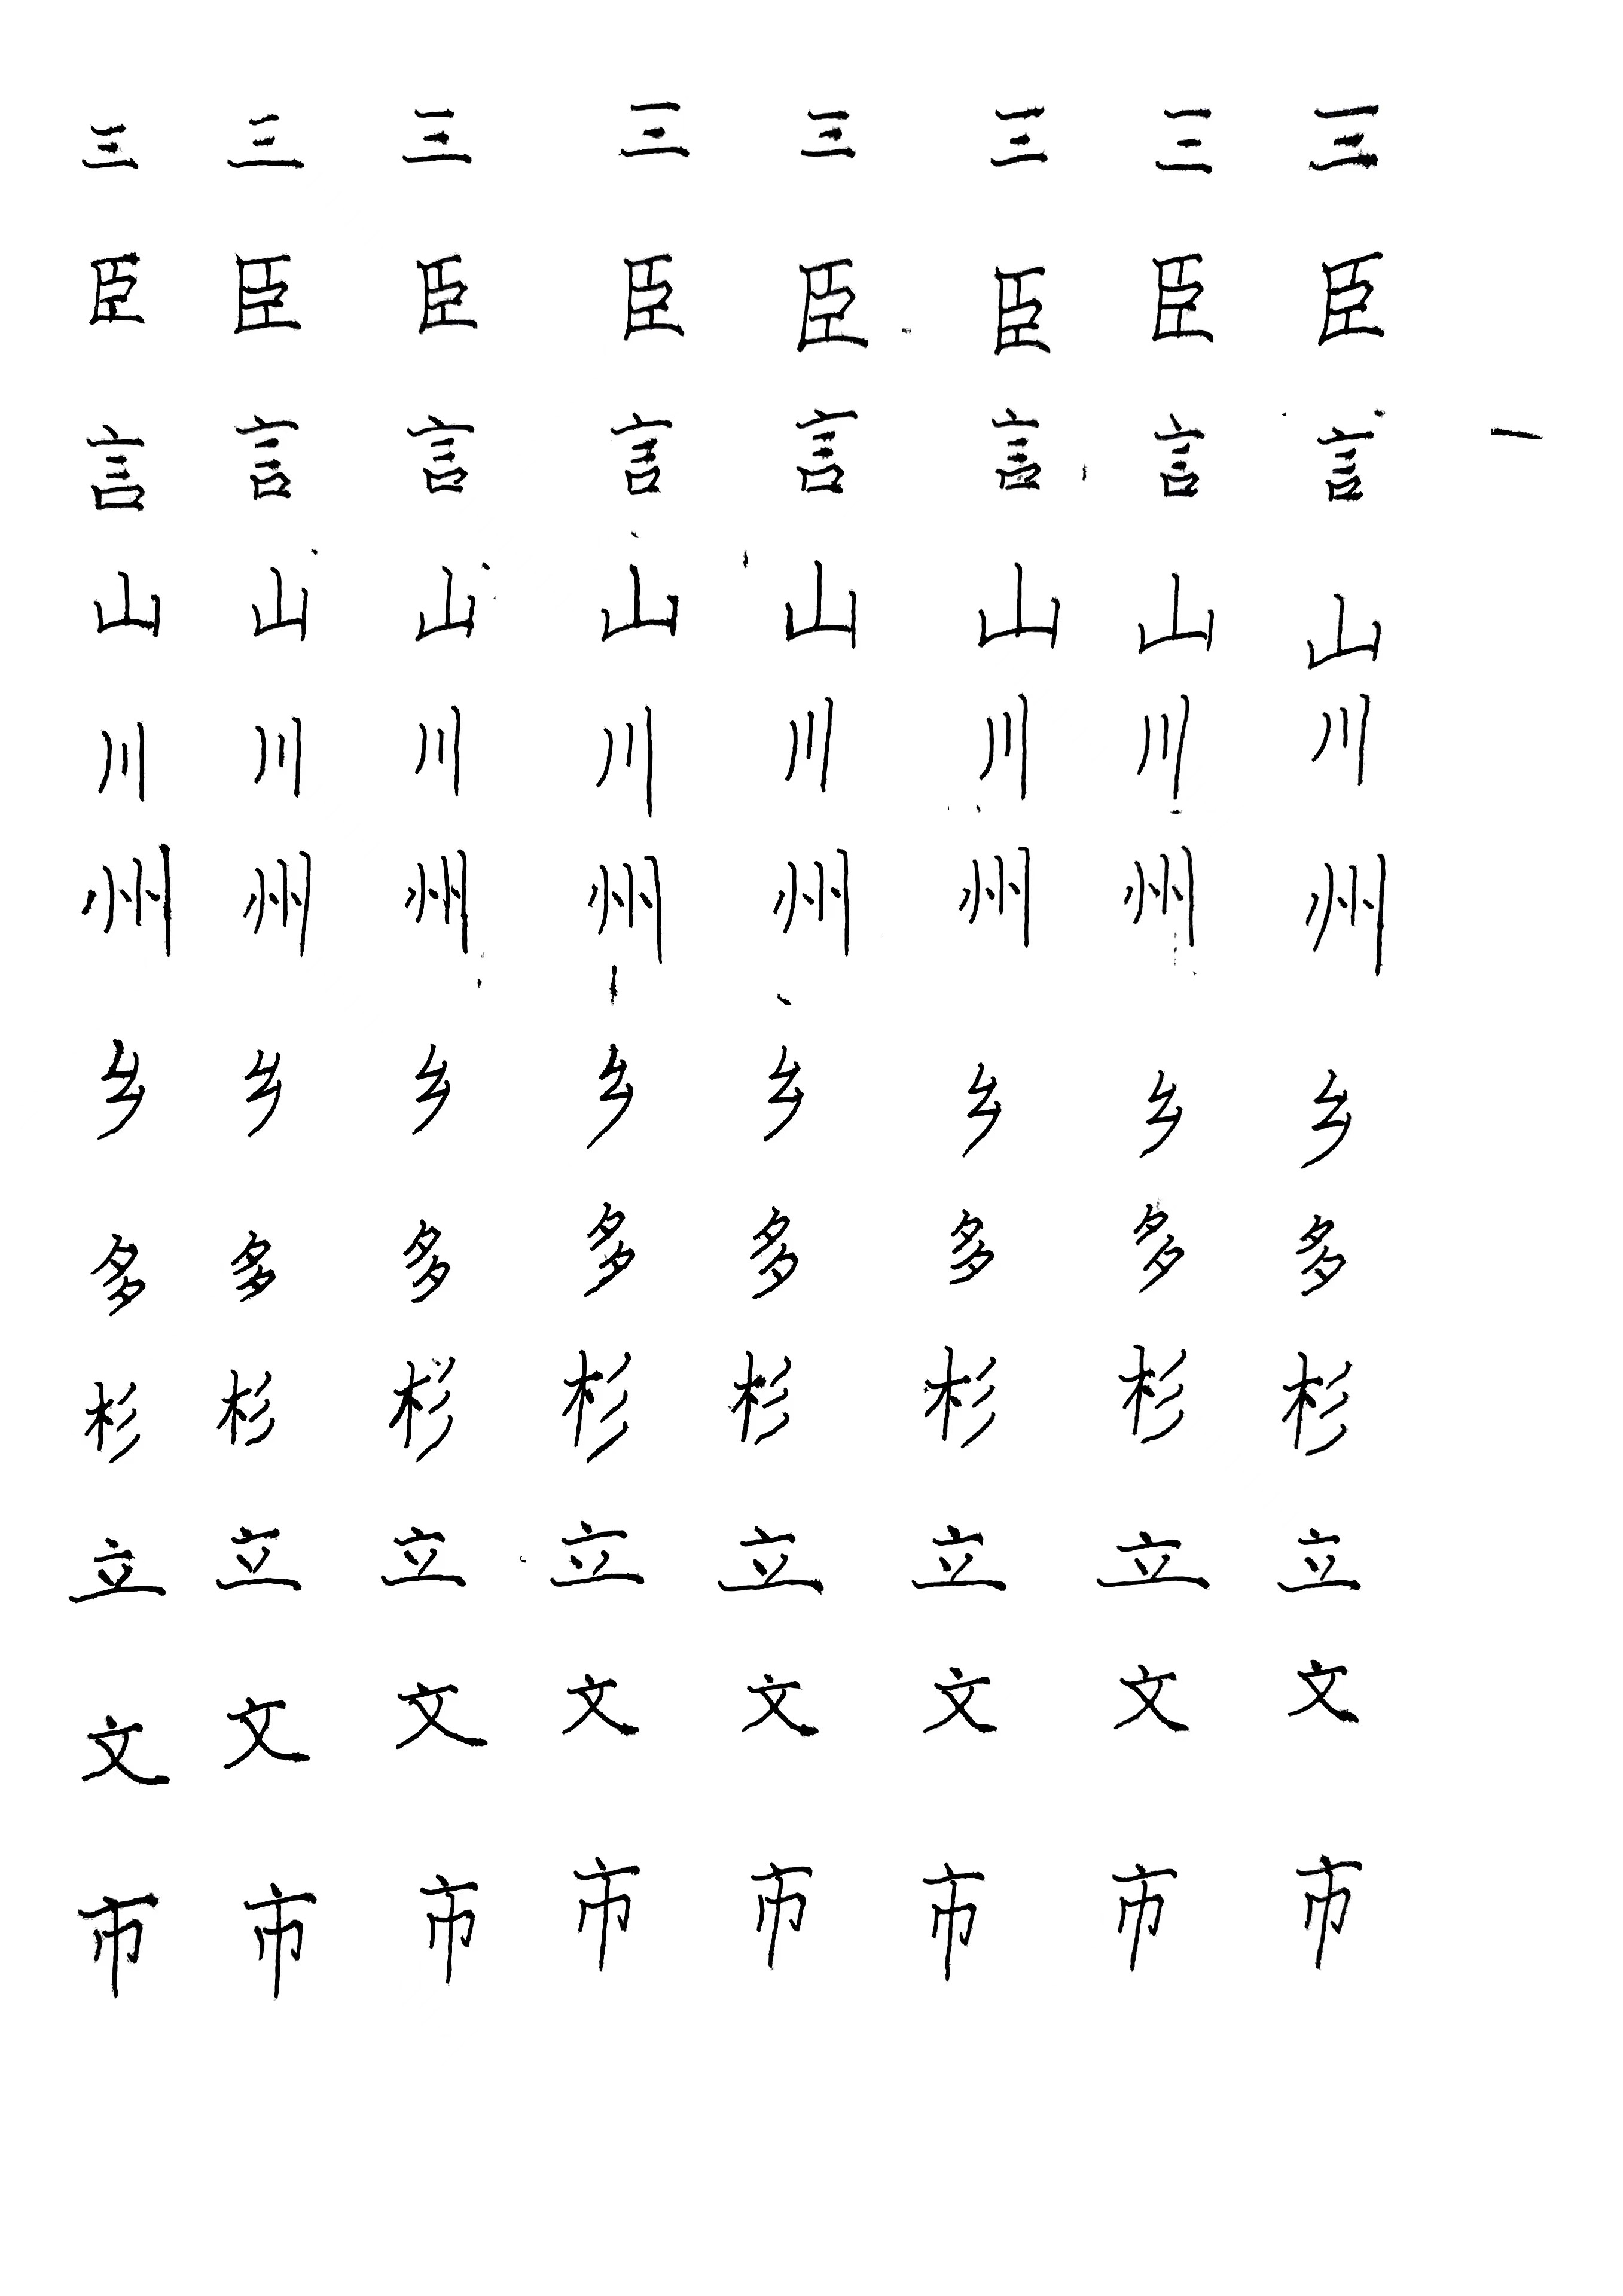 三 三 三 三 三 三 三 三
臣 臣 臣 臣 臣 臣 臣 臣
言 言 言 言 言 言 言 言
山 山 山 山 山 山 山 山
川 川 川 川 川 川 川 川
州 州 州 州 州 州 州 州
乡 乡 乡 乡 乡 乡 乡 乡
多 多 多 多 多 多 多 多
杉 杉 杉 杉 杉 杉 杉 杉
立 立 立 立 立 立 立 立
文 文 文 文 文 文 文 文
市 市 市 市 市 市 市 市